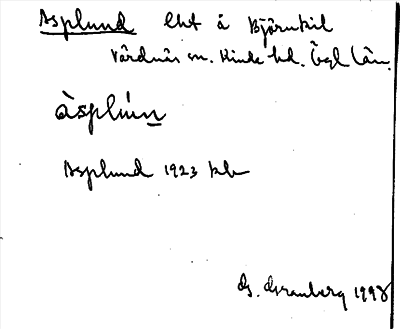 Asplund lht å Björnkil
Vårdnäs sn. Kinda hd. Ögl län.
àsplún
Asplund 1923 kb
G. Granberg 1998